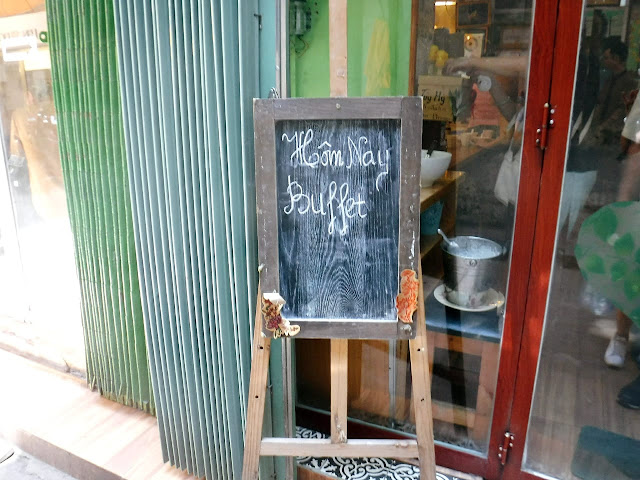 Hôm Nay
Buffet